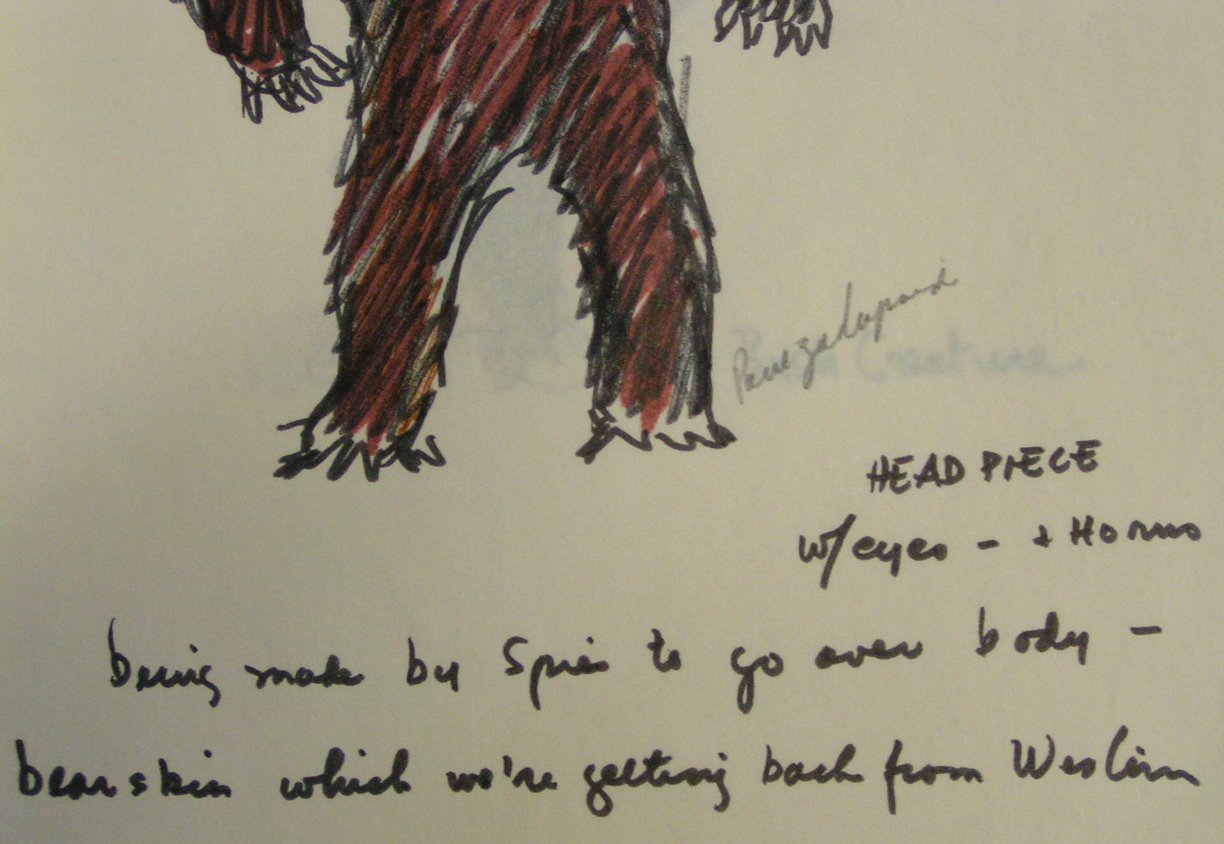 Creature
HEAD PIECE
w/eyes - + Horns
being made by Spies to go over body -
bearskin which we're getting back from Western